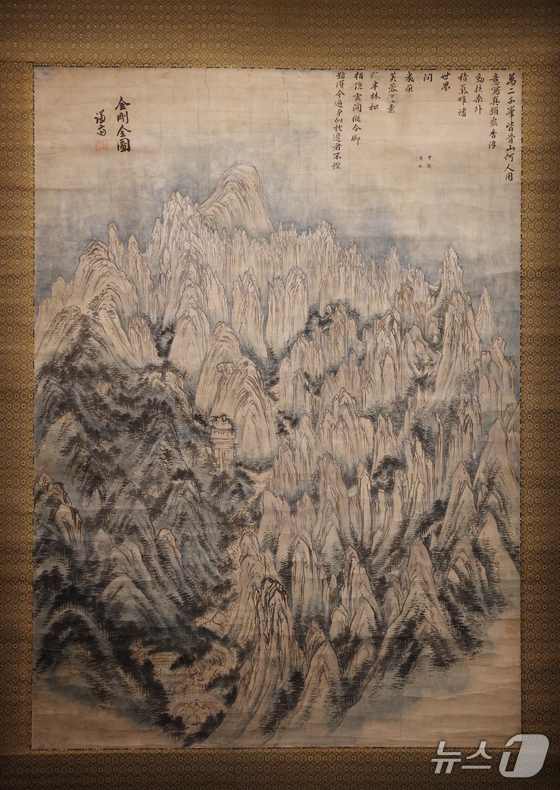 萬二千峯皆骨山何人用
意寫眞顔衆香浮
動扶桑外
積氣雄蟠
世界
間
幾朶
芙蓉揚素
彩半林松
栢隱玄關從令脚
踏須今遍爭似枕邊看不慳
金剛全圖
謙齋
뉴스1